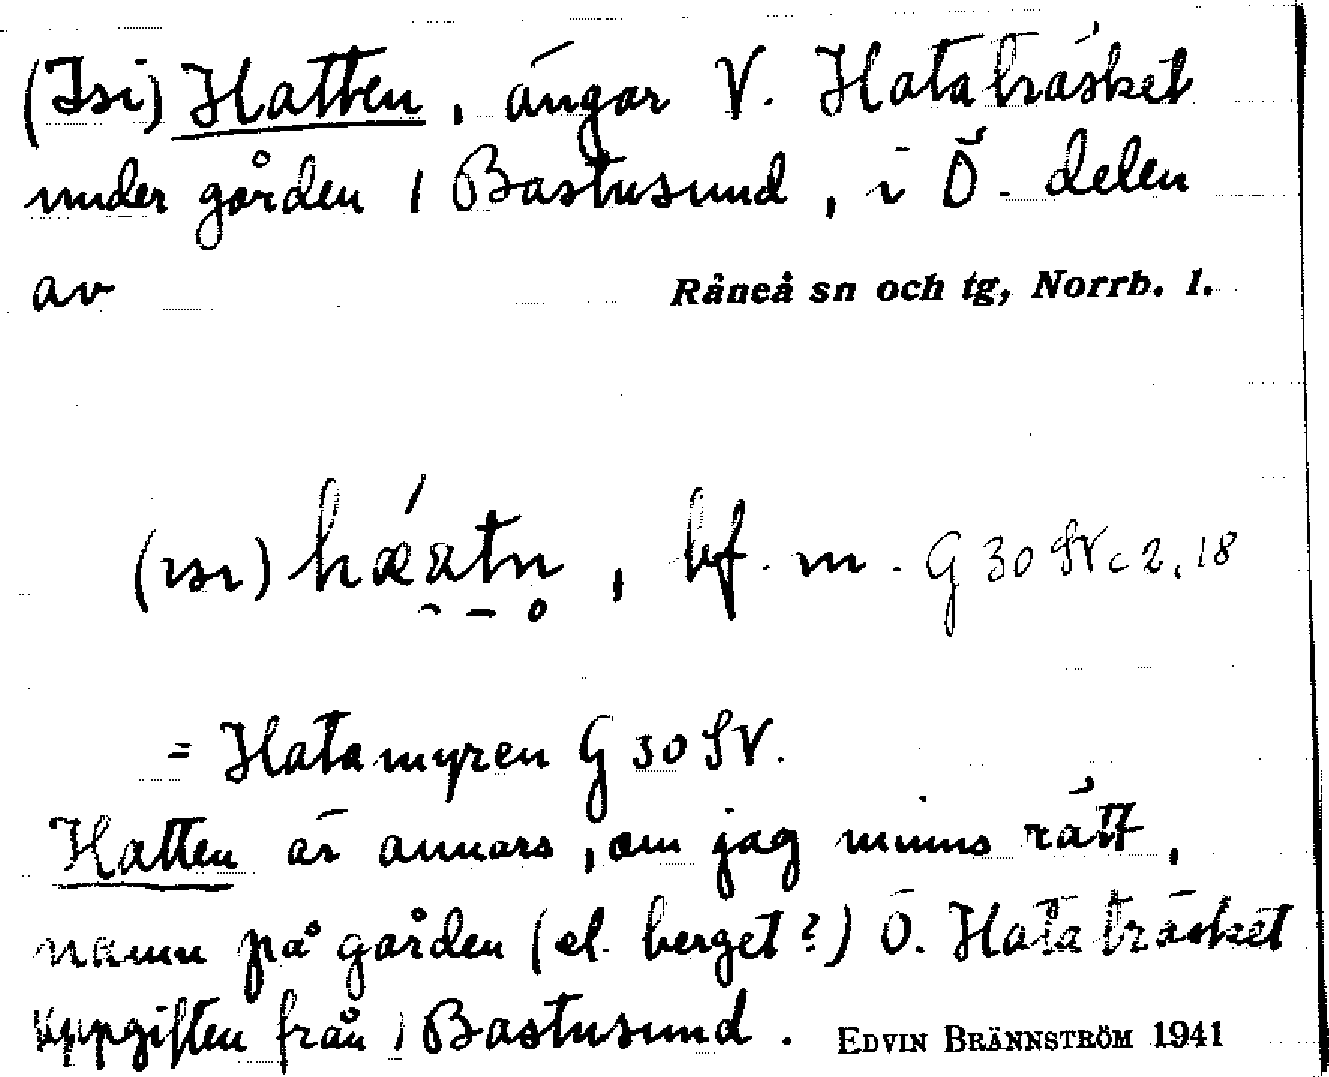 (Isi) Hatten, ängar V. Hataträsket
under gården 1 Bastusund, i Ö. delen
av Råneå sn och tg, Norrb. l.
(ısı) hǽätn̥, bf. m. G 30 SV c 2, 18
= Hatamyren G 30 SV.
Hatten är annars, om jag minns rätt,
namn på gården (el. berget?) Ö. Hataträsket
Uppgiften från 1 Bastusund. EDVIN BRÄNNSTRÖM 1941